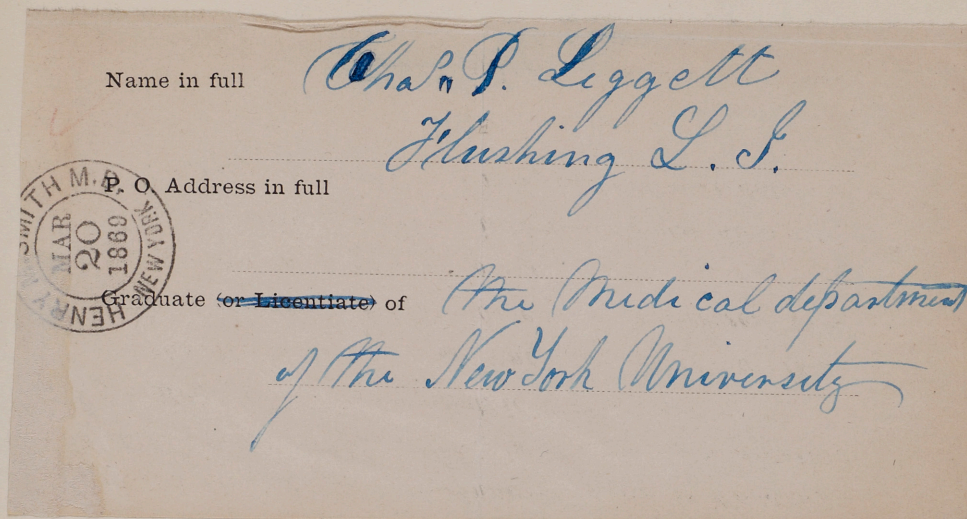 Name in full Chas. P. Leggett
Flushing L. I.
P. O. Address in full
HENRY M. SMITH M.D. NEW YORK
MAR
20
1869
Graduate (or Licentiate) of the Medical department
of the New York University